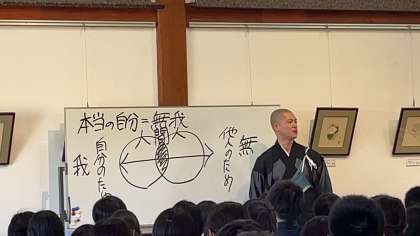 本当の自分=無我
人間
我
自分のため
他人のため
無